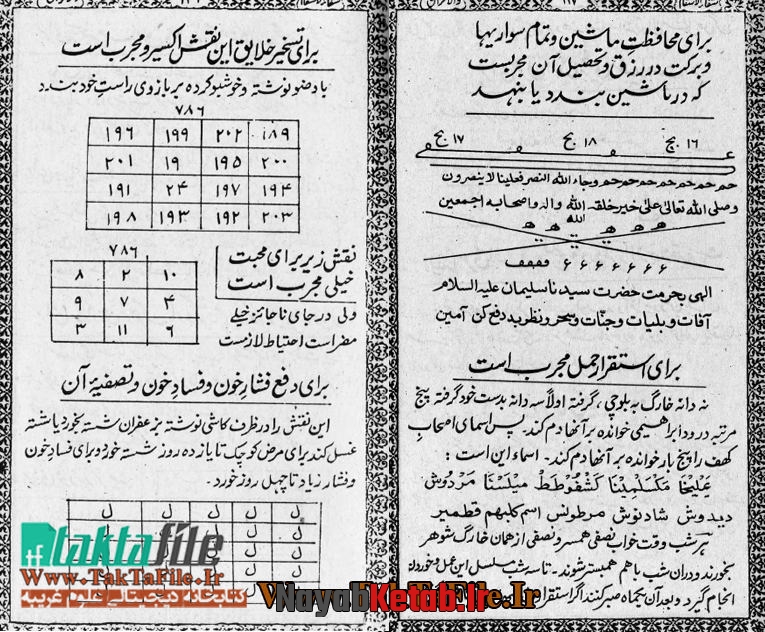 برای محافظت ماشین و تمام سواریها
و برکت در رزق و تحصیل آن مجربست
که در ماشین بندد یا بنهد
۱۶ بج ۱۸ بج ۱۷ بج
حم حم حم حم حم حم حم وجاء الله النصر فعلینا لا ینصرون
وصلی الله تعالی علی خیر خلقه الله واله واصحابه اجمعین
الله
الهی بحرمت حضرت سیدنا سلیمان علیه السلام
آفات و بلیات و جنات و سحر و نظر بد دفع کن آمین
برای استقرار حمل مجرب است
نه دانه خارگ به بلوچی، گرفته اولاً سه دانه بدست خود گرفته پنج
مرتبه درود ابراهیمی خوانده بر آنها دم کند. پس اسمای اصحاب
کهف را پنج بار خوانده بر آنها دم کند. اسماء این است:
یَمْلِیْخا مَکْسَلْمِیْنا کَشْفُوْطَطْ میْلَسْنا مَرْدُوش
دیدوش شاذنوش مرطونس اسم کلبهم قطمیر
هر شب وقت خواب نصفی همسر و نصفی از همان خارگ شوهر
بخورند و در آن شب با هم همبستر شوند. تا سه شب مسلسل این عمل و خوردن
انجام گیرد و بعد آن یکماه صبر کنند اگر استقرار
برای تسخیر خلایق این نقش اکسیر و مجرب است
با وضو نوشته و خوشبو کرده بر بازوی راست خود بندد
۷۸۶
۱۹۶ ۱۹۹ ۲۰۲ ۱۸۹
۲۰۱ ۱۹ ۱۹۵ ۲۰۰
۱۹۱ ۲۴ ۱۹۷ ۱۹۴
۱۹۸ ۱۹۳ ۱۹۲ ۲۰۳
نقش زیر برای محبت
خیلی مجرب است
ولی در جای ناجائز خیلے
مضر است احتیاط لازمست
۷۸۶
۸ ۲ ۱۰
۹ ۷ ۴
۳ ۱۱ ۶
برای دفع فشار خون و فساد خون و تصفیهٔ آن
این نقش را در ظرف کاشی نوشته بزعفران شسته بخورد یا شسته
غسل کند برای مرض کوچک تا یازده روز شسته خورد و برای فساد خون
و فشار زیاد تا چهل روز خورد.
ل ل ل ل ل
ل ل ل
ل ل ل
ل ل ل
taktafile
Www.TakTaFile.Ir
کتابخانه دیجیتالی علوم غریبه
NayabKetab.ir